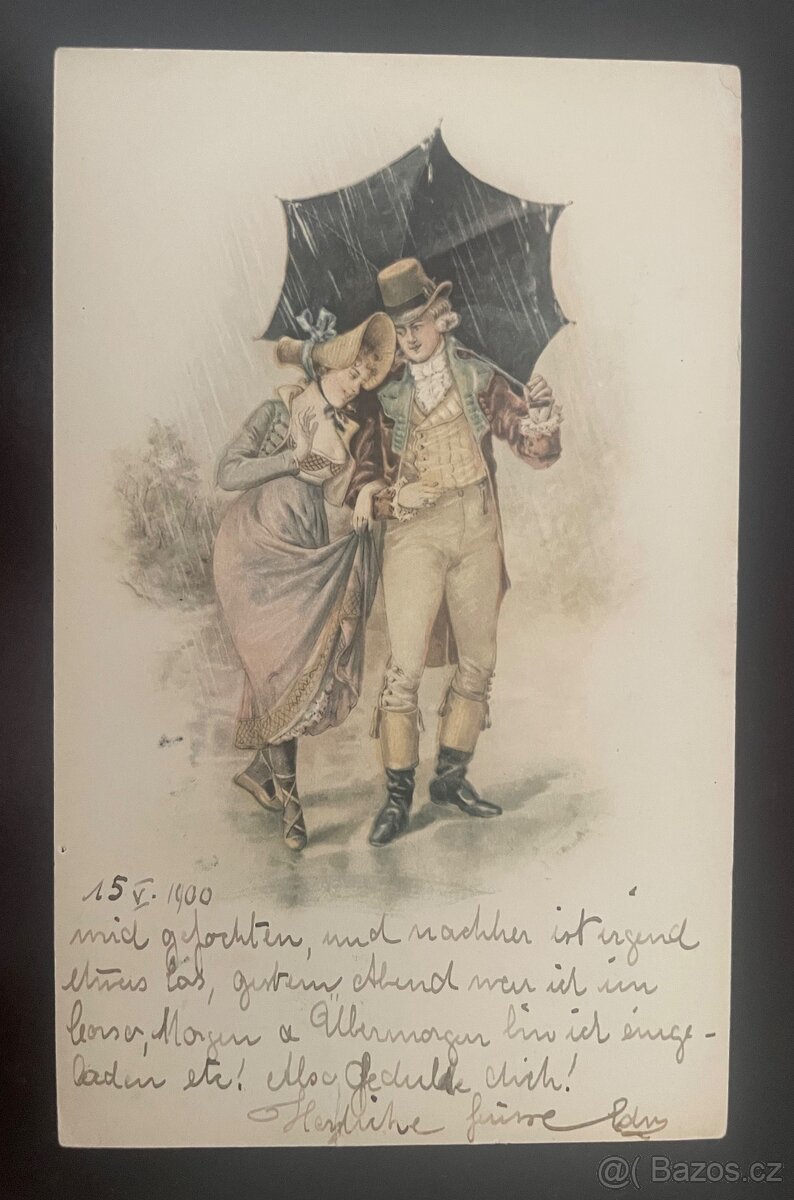 15 V. 1900
wird gefochten, und nachher ist irgend
etwas los, gestern Abend war ich im
Corso, Morgen & Übermorgen bin ich einge-
laden etc! Also Gedulde dich!
Herzliche Grüsse
@( Bazos.cz